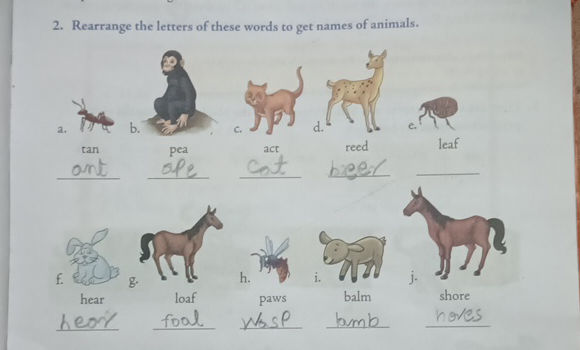 2. Rearrange the letters of these words to get names of animals.
a. b. c. d. e.
tan pea act reed leaf
ant ape Cat beer
f. g. h. i. j.
hear loaf paws balm shore
hear foal Wasp lamb hores